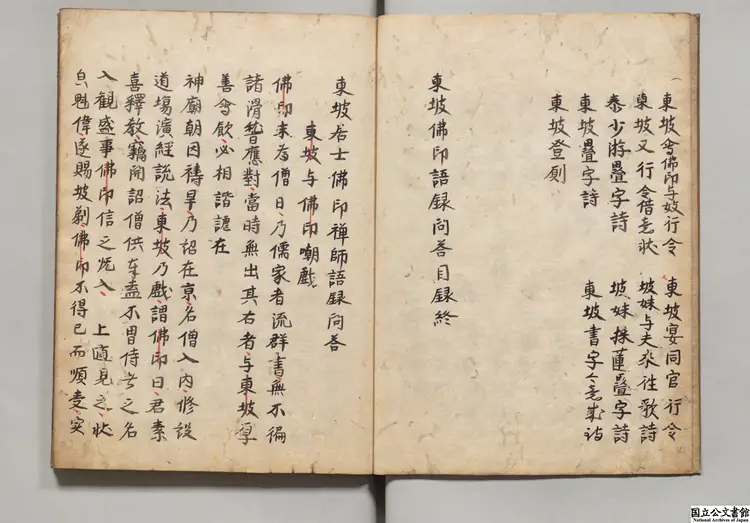 東坡會佛印与妓行令　東坡宴同官行令
東坡又行令借毛状　坡妹与夫来往歌詩
秦少游疊字詩　坡妹採蓮疊字詩
東坡疊字詩　東坡書字
東坡登厠
東坡佛印語録問答目録終
東坡居士佛印禅師語録問答
東坡与佛印嘲戲
佛印未為僧日乃儒家者流群書無不徧
諸滑稽應對當時無出其右者与東坡厚
善會飲必相諧謔在
神廟朝因禱旱乃詔在京名僧入内修設
道場演經説法東坡乃戲謂佛印曰君素
喜釋教竊聞詔僧供奉盍不冒侍者之名
入觀盛事佛印信之既入　上適見之状
皃魁偉遂賜披剃佛印不得已而順受実
国立公文書館
National Archives of Japan